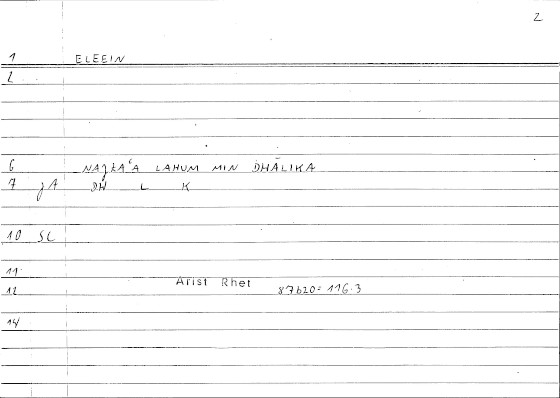 2
1 ELEEIN
2
6 NAJZAʿA LAHUM MIN DHĀLIKA
7 jA DH L K
10 SL
11
12 Arist Rhet 87b20=116.3
14